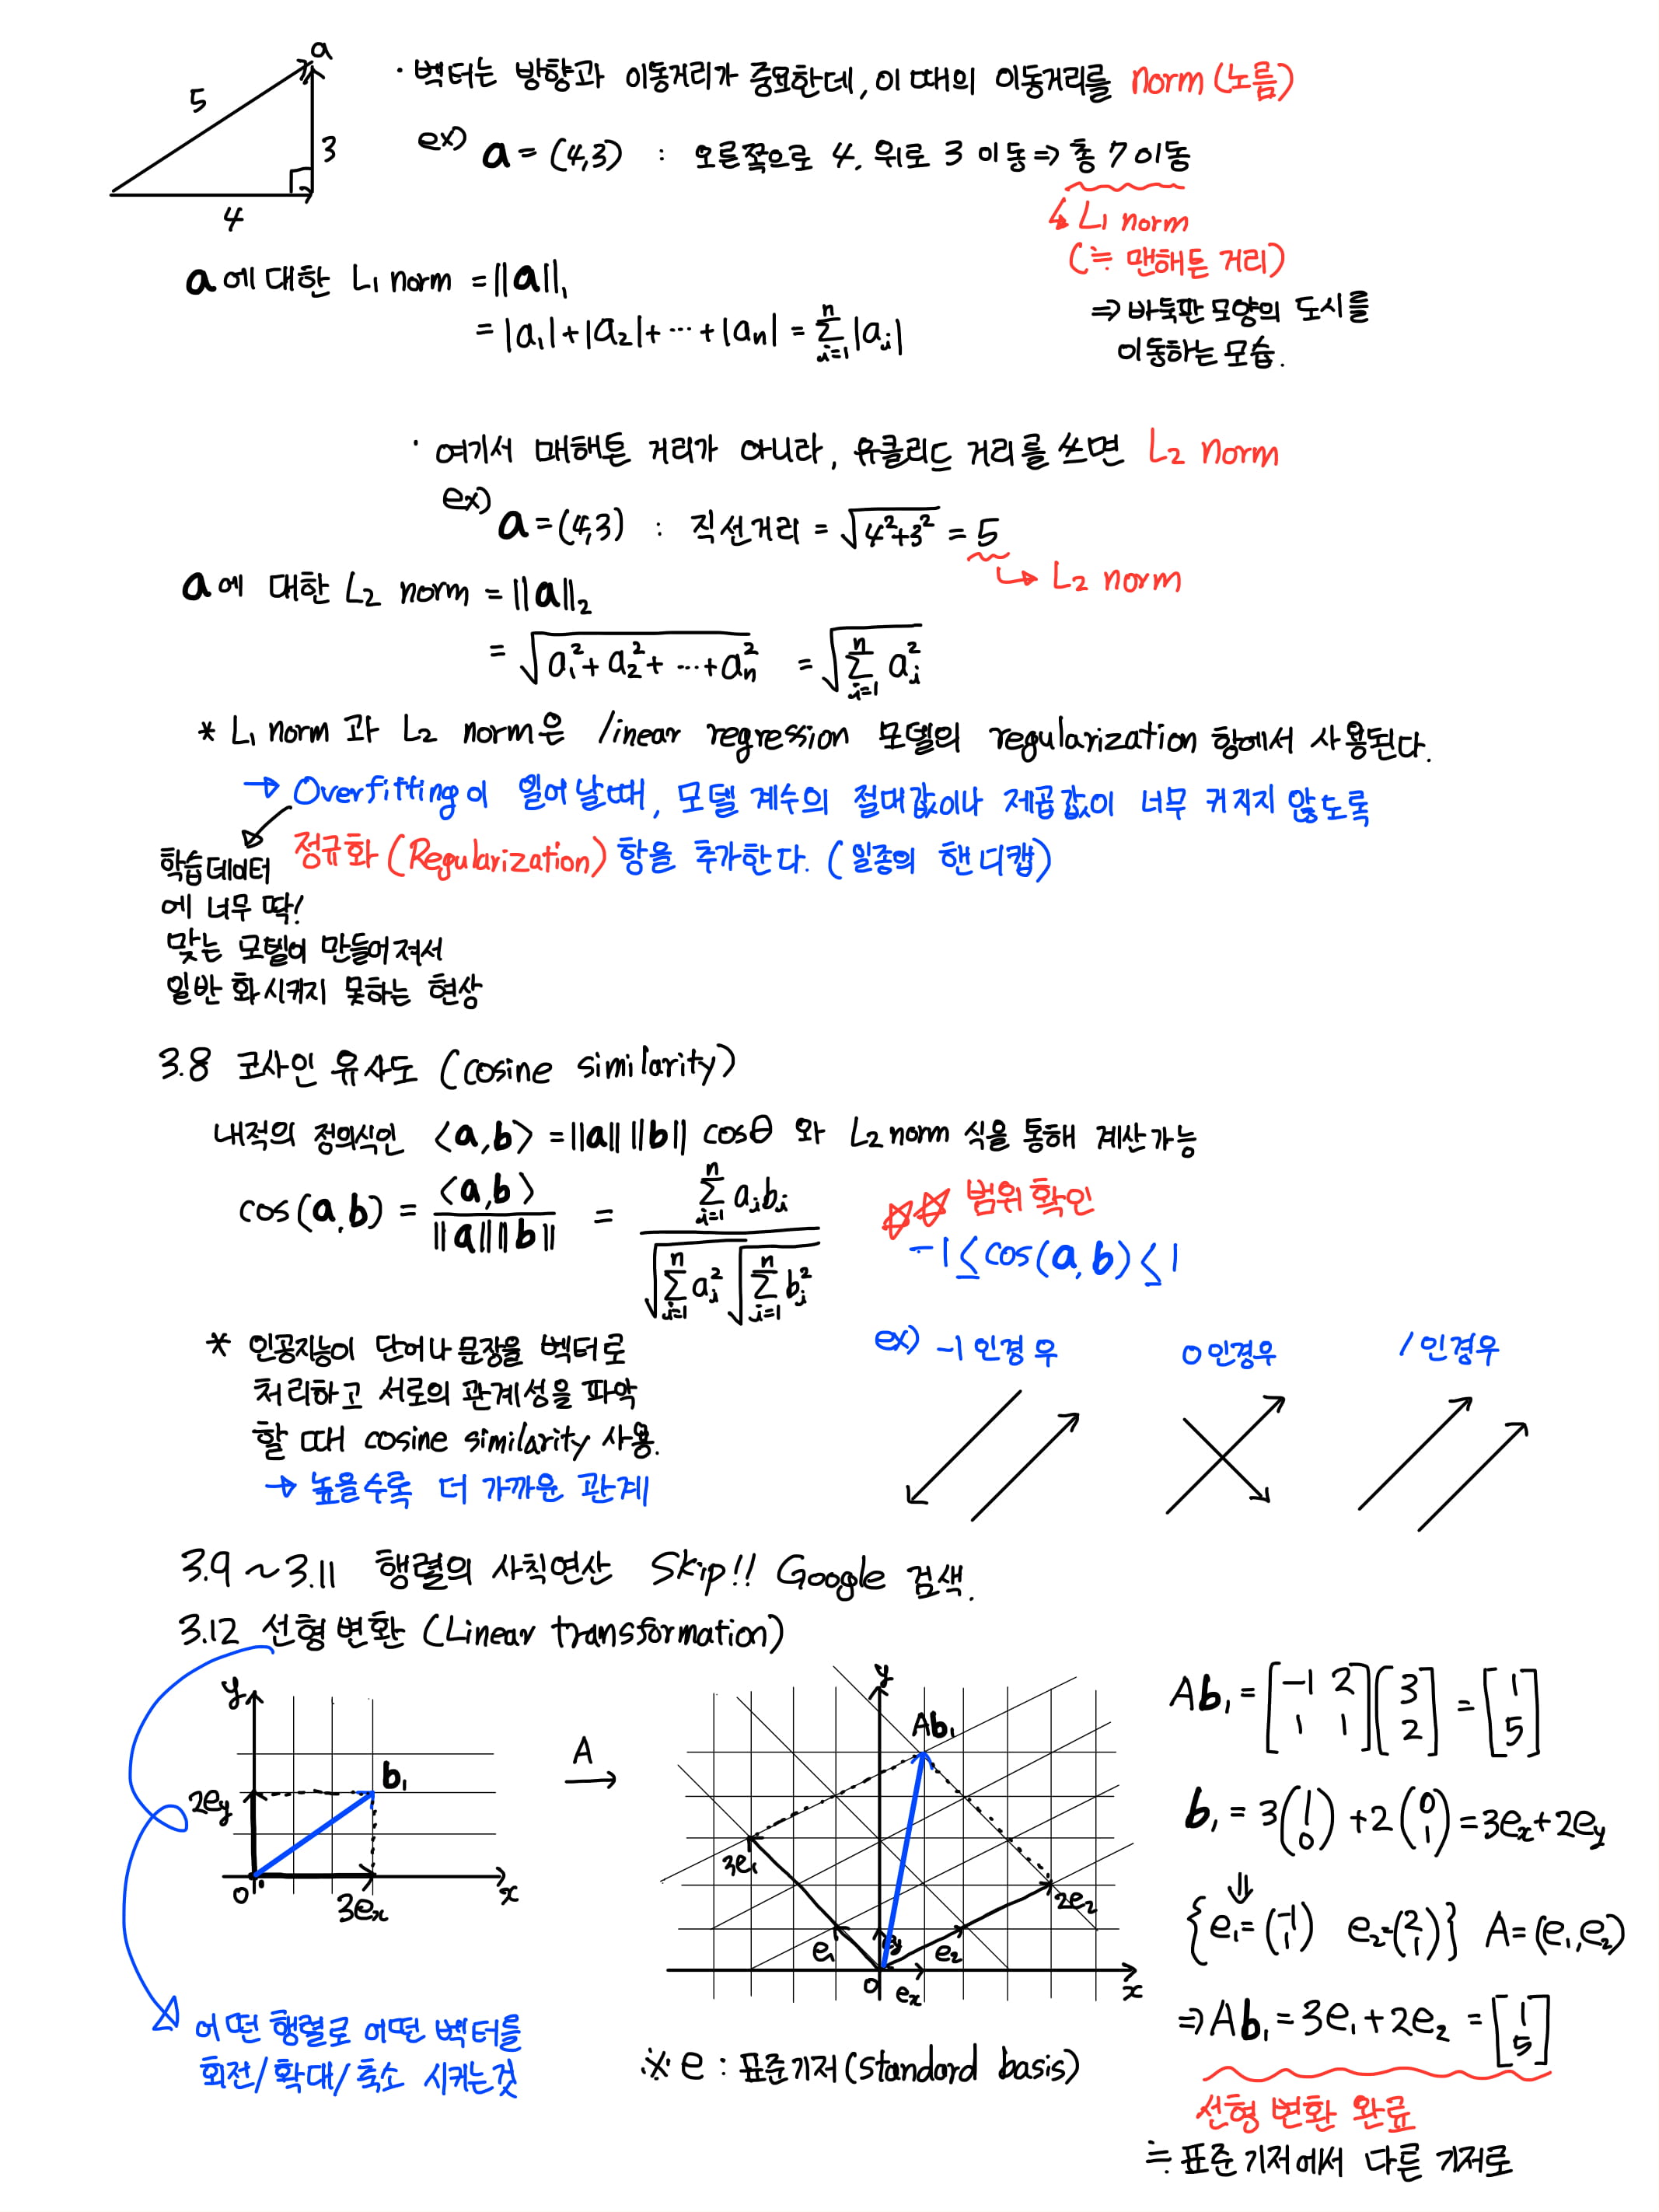 a
5
3
4
· 벡터는 방향과 이동거리가 중요한데, 이 때의 이동거리를 norm (노름)
ex) a = (4,3) : 오른쪽으로 4, 위로 3 이동 ⇒ 총 7 이동
↳ L₁ norm
(≒ 맨해튼 거리)
⇒ 바둑판 모양의 도시를
이동하는 모습.
a에 대한 L₁ norm = ||a||₁
= |a₁| + |a₂| + ··· + |aₙ| = Σⁿᵢ₌₁ |aᵢ|
· 여기서 매해튼 거리가 아니라, 유클리드 거리를 쓰면 L₂ norm
ex) a = (4,3) : 직선거리 = √(4²+3²) = 5
↳ L₂ norm
a에 대한 L₂ norm = ||a||₂
= √(a₁² + a₂² + ··· + aₙ²) = √(Σⁿᵢ₌₁ aᵢ²)
* L₁ norm 과 L₂ norm은 linear regression 모델의 regularization 항에서 사용된다.
→ Overfitting이 일어날때, 모델 계수의 절대값이나 제곱값이 너무 커지지 않도록
정규화 (Regularization) 항을 추가한다. (일종의 핸디캡)
학습데이터
에 너무 딱!
맞는 모델이 만들어져서
일반화시키지 못하는 현상
3.8 코사인 유사도 (cosine similarity)
내적의 정의식인 <a,b> = ||a|| ||b|| cosθ 와 L₂ norm 식을 통해 계산가능
cos(a,b) = <a,b> / ||a|| ||b|| = Σⁿᵢ₌₁ aᵢbᵢ / √(Σⁿᵢ₌₁ aᵢ²) √(Σⁿᵢ₌₁ bᵢ²)
☆☆ 범위 확인
-1 ≤ cos(a,b) ≤ 1
* 인공지능이 단어나 문장을 벡터로
처리하고 서로의 관계성을 파악
할 때 cosine similarity 사용.
→ 높을수록 더 가까운 관계
ex) -1 인경우
0 인경우
1 인경우
3.9 ~ 3.11 행렬의 사칙연산 Skip!! Google 검색.
3.12 선형 변환 (Linear transformation)
y
2e_y
b₁
0
3e_x
x
A
→
y
Ab₁
3e₁
2e₂
e₁
e_y
e₂
0
e_x
x
Ab₁ = [-1 2; 1 1] [3; 2] = [1; 5]
b₁ = 3(1; 0) + 2(0; 1) = 3e_x + 2e_y
⇓
{e₁ = (-1; 1) e₂ = (2; 1)} A = (e₁, e₂)
⇒ Ab₁ = 3e₁ + 2e₂ = [1; 5]
선형 변환 완료
≒ 표준기저에서 다른 기저로
어떤 행렬로 어떤 벡터를
회전/확대/축소 시키는것
※ e : 표준기저 (standard basis)